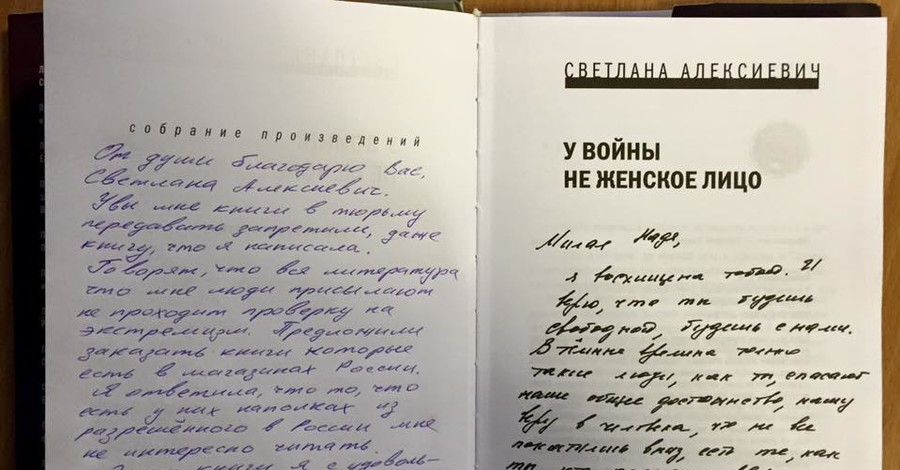 собрание произведений
От души благодарю Вас,
Светлана Алексиевич.
Увы мне книги в тюрьму
передавать запретили, даже
книгу, что я написала.
Говорят, что вся литература
что мне люди присылают
не проходит проверку на
экстремизм. Предложили
заказать книги которые
есть в магазинах России.
Я ответила, что то, что
есть у них наполках из
разрешённого в России мне
не интересно читать.
книги я с удоволь-
СВЕТЛАНА АЛЕКСИЕВИЧ
У ВОЙНЫ
НЕ ЖЕНСКОЕ ЛИЦО
Милая Надя,
я восхищена тобой. И
верю, что ты будешь
свободной, будешь с нами.
В тёмные времена только
такие люди, как ты, спасают
наше общее достоинство, нашу
веру в человека, что не все
есть те, как
ты